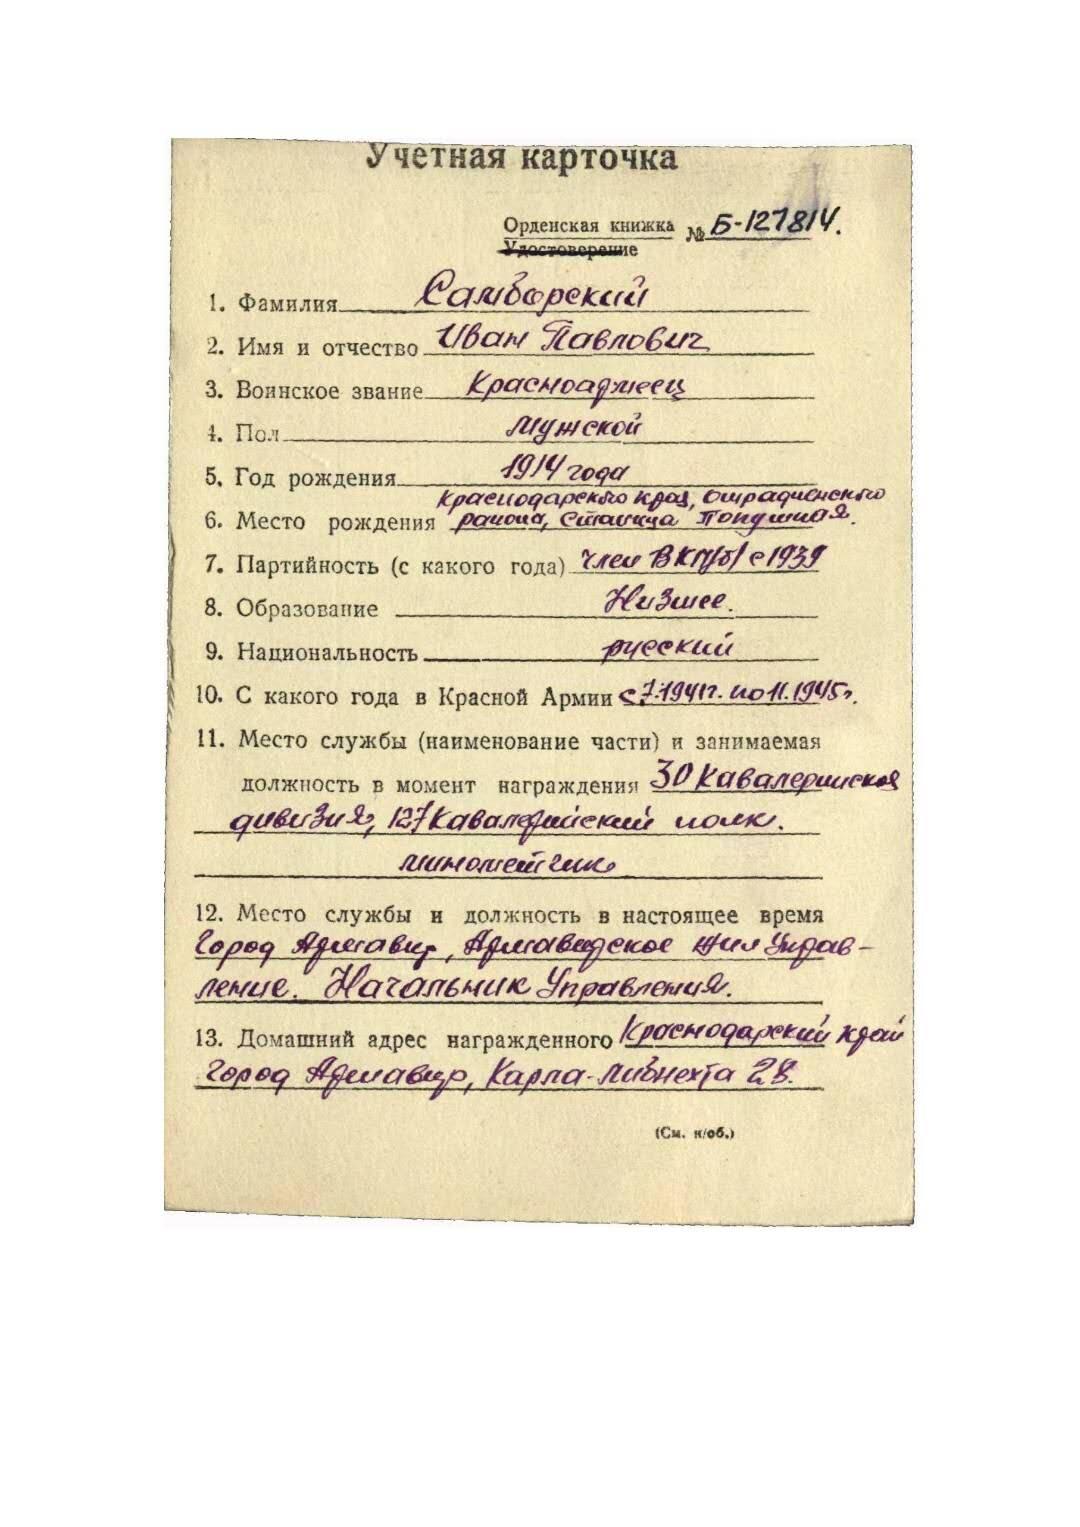 Учетная карточка
Орденская книжка № Б-127814.
Удостоверение
1. Фамилия Самборский
2. Имя и отчество Иван Павлович
3. Воинское звание Красноармеец
4. Пол Мужской
5. Год рождения 1914 года
Краснодарского края, Отрадненского
6. Место рождения района, станица Попутная.
7. Партийность (с какого года) член ВКП/б/ с 1939
8. Образование Низшее.
9. Национальность русский
10. С какого года в Красной Армии с 7.1941г. по 11.1945г.
11. Место службы (наименование части) и занимаемая
должность в момент награждения 30 Кавалерийская
дивизия, 127 Кавалерийский полк.
минометчик
12. Место службы и должность в настоящее время
Город Армавир, Армавирское жил Управ-
ление. Начальник Управления.
13. Домашний адрес награжденного Краснодарский край
Город Армавир, Карла-Либнехта 28.
(См. н/об.)